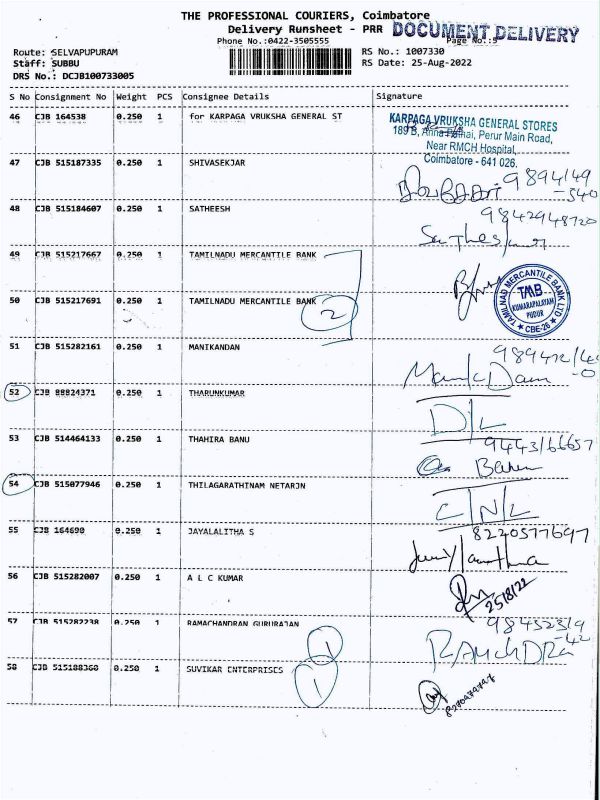 THE PROFESSIONAL COURIERS, Coimbatore
Delivery Runsheet - PRR
DOCUMENT DELIVERY
Phone No.:0422-3505555
Page No.:5
Route: SELVAPUPURAM
Staff: SUBBU
DRS No.: DCJB100733005
RS No.: 1007330
RS Date: 25-Aug-2022
S No Consignment No Weight PCS Consignee Details Signature
46 CJB 164538 0.250 1 for KARPAGA VRUKSHA GENERAL ST
KARPAGA VRUKSHA GENERAL STORES
189 B, Anna Pathai, Perur Main Road,
Near RMCH Hospital,
Coimbatore - 641 026.
47 CJB 515187335 0.250 1 SHIVASEKJAR
9894149
-540
48 CJB 515184607 0.250 1 SATHEESH
9842948720
49 CJB 515217667 0.250 1 TAMILNADU MERCANTILE BANK
50 CJB 515217691 0.250 1 TAMILNADU MERCANTILE BANK
2
TAMILNAD MERCANTILE BANK LTD
TMB
KUMARAPALAYAM
PUDUR
★ CBE-26 ★
51 CJB 515282161 0.250 1 MANIKANDAN
52 CJB 88824371 0.250 1 THARUNKUMAR
D/L
53 CJB 514464133 0.250 1 THAHIRA BANU
9443166657
54 CJB 515077946 0.250 1 THILAGARATHINAM NETARJN
C/N/L
55 CJB 164690 0.250 1 JAYALALITHA S
8220577697
56 CJB 515282007 0.250 1 A L C KUMAR
25/8/22
57 CJB 515282238 0.250 1 RAMACHANDRAN GURURAJAN
1
-42
RAMCHDRA
58 CJB 515188360 0.250 1 SUVIKAR ENTERPRISES
1